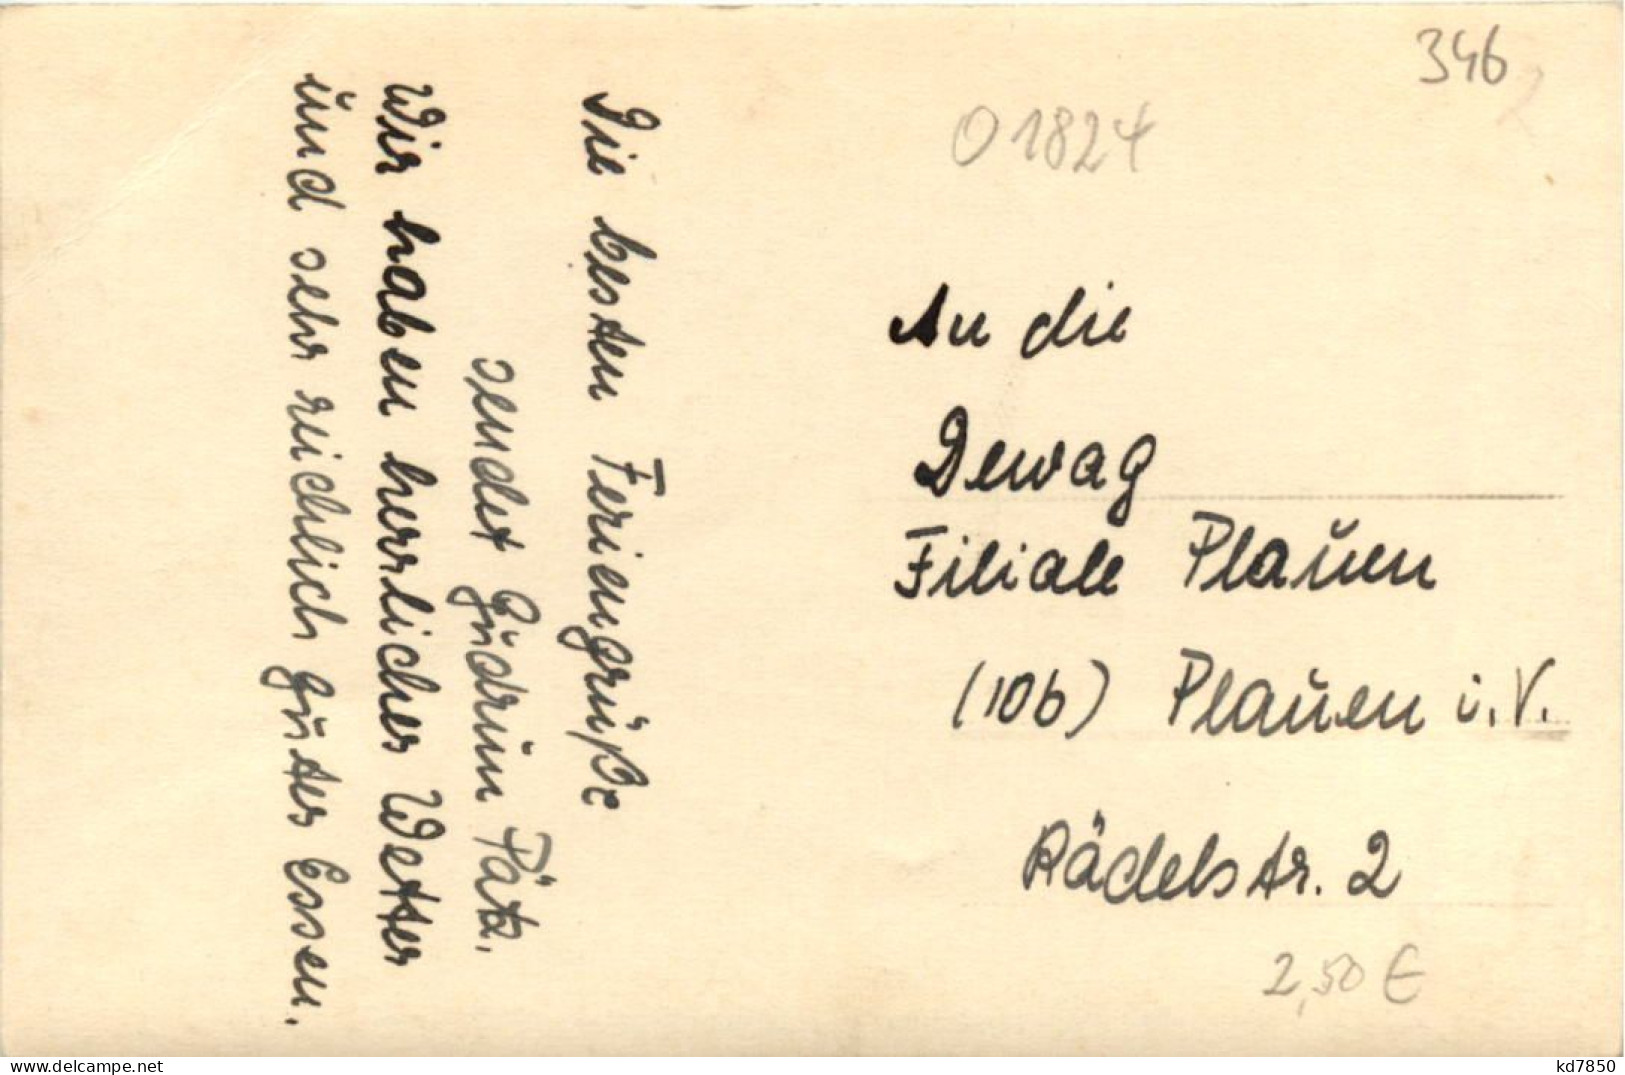 346
01824
Die besten Feriengrüße
sendet Gudrun Pätz.
Wir haben herrliches Wetter
und sehr reichlich gutes Essen.
An die
Dewag
Filiale Plauen
(10b) Plauen i. V.
Rädelstr. 2
2,50 €
delcampe.net
kd7850